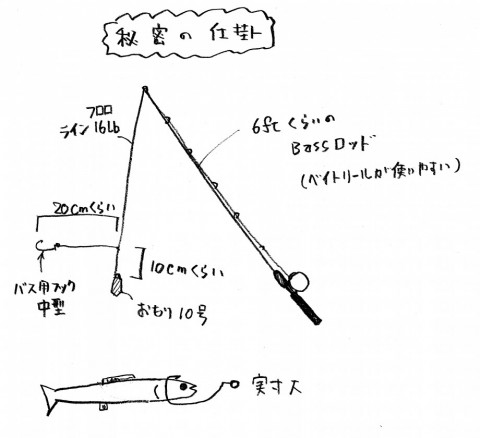 秘密の仕掛ト
フロロ
ライン16Lb
6ftくらいの
Bassロッド
(ベイトリールが使いやすい)
20cmくらい
10cmくらい
バス用フック
中型
おもり10号
実寸大